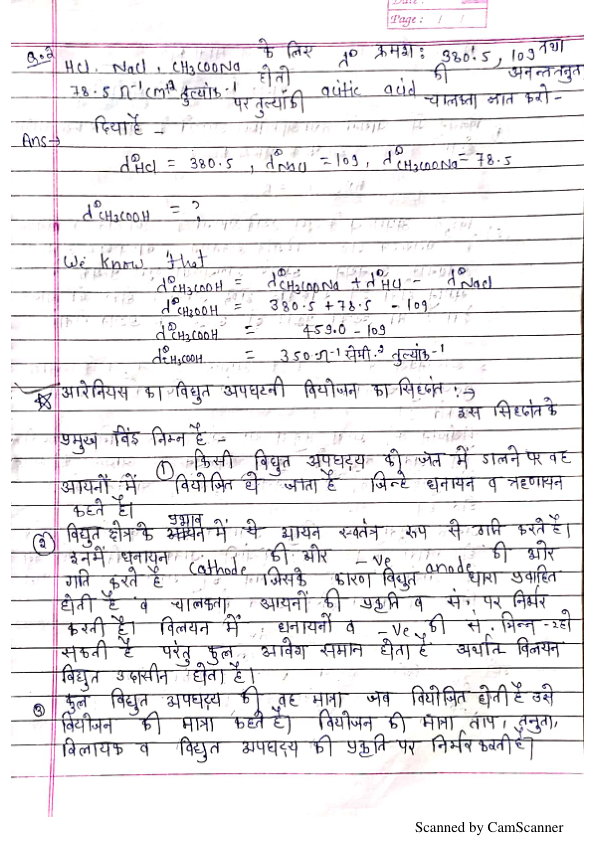 Date :
Page :
Q.2 HCl, NaCl, CH3COONa के लिए λ∞ क्रमशः 380.5, 109 तथा
78.5 Ω-1cm2 तुल्यांक-1 होती acitic acid की अनन्त तनुता
पर तुल्यांकी चालकता ज्ञात करो -
Ans→ दिया है -
λ∞HCl = 380.5, λ∞NaCl = 109, λ∞CH3COONa = 78.5
λ∞CH3COOH = ?
We Know that
λ∞CH3COOH = λ∞CH3COONa + λ∞HCl - λ∞NaCl
λ∞CH3COOH = 380.5 + 78.5 - 109
λ∞CH3COOH = 459.0 - 109
λ∞CH3COOH = 350 Ω-1 सेमी.2 तुल्यांक-1
आरेनियस का विद्युत अपघटनी वियोजन का सिद्धांत :→
इस सिद्धांत के
प्रमुख बिंदु निम्न है -
① किसी विद्युत अपघट्य को जल में डालने पर वह
आयनों में वियोजित हो जाता है जिन्हे धनायन व ऋणायन
कहते है।
② विद्युत क्षेत्र के प्रभाव में ये आयन स्वतंत्र रूप से गति करते है।
इनमें धनायन cathode की ओर -ve anode की ओर
गति करते है जिसके कारण विद्युत धारा प्रवाहित
होती है व चालकता आयनों की प्रकृति व सं. पर निर्भर
करती है। विलयन में धनायनों व -ve की सं. भिन्न-2 हो
सकती है परंतु कुल आवेग समान होता है अर्थात विलयन
विद्युत उदासीन होता है।
③ कुल विद्युत अपघट्य की वह मात्रा जब वियोजित होती है उसे
वियोजन की मात्रा कहते है। वियोजन की मात्रा ताप, तनुता,
विलायक व विद्युत अपघट्य की प्रकृति पर निर्भर करती है।
Scanned by CamScanner